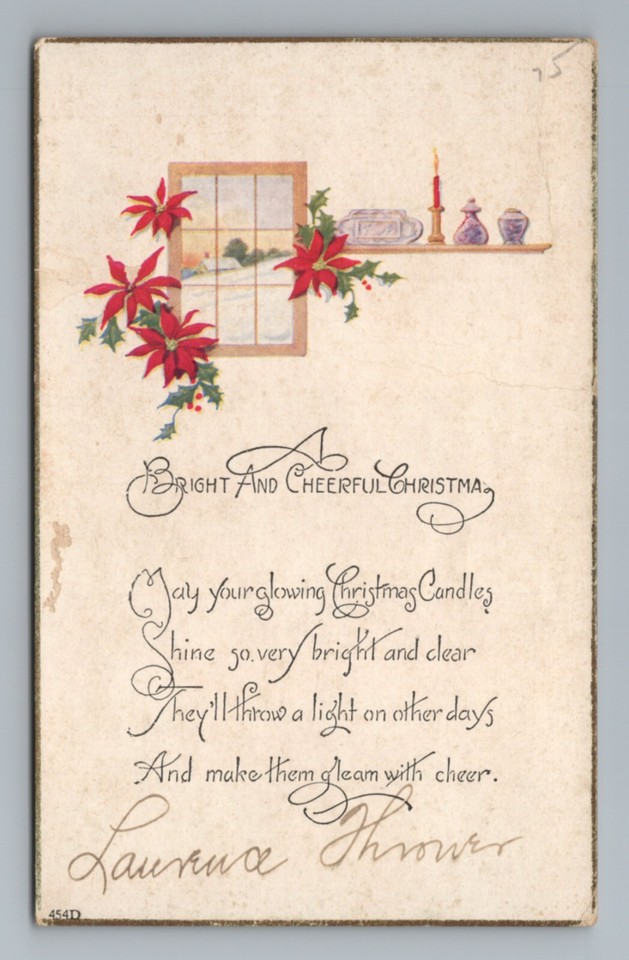 75
A
BRIGHT AND CHEERFUL CHRISTMAS
May your glowing Christmas Candles
Shine so very bright and clear
They'll throw a light on other days
And make them gleam with cheer.
Laurence Thrower
454D